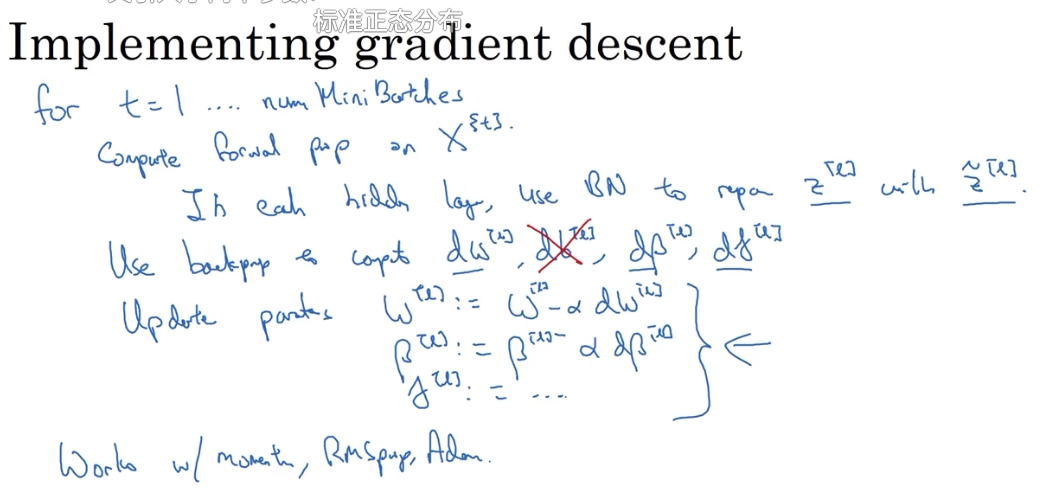 标准正态分布
Implementing gradient descent
for t = 1 .... num Mini Batches
Compute forwal pop on X^{t}.
In each hidden lay, use BN to repa z^[l] with z̃^[l].
Use backprop to compt dw^[l], db^[l], dβ^[l], dγ^[l]
Update partes W^[l] := W^[l] - α dw^[l]
β^[l] := β^[l] - α dβ^[l]
γ^[l] := ....
Works w/ momentm, RMSprop, Adam.